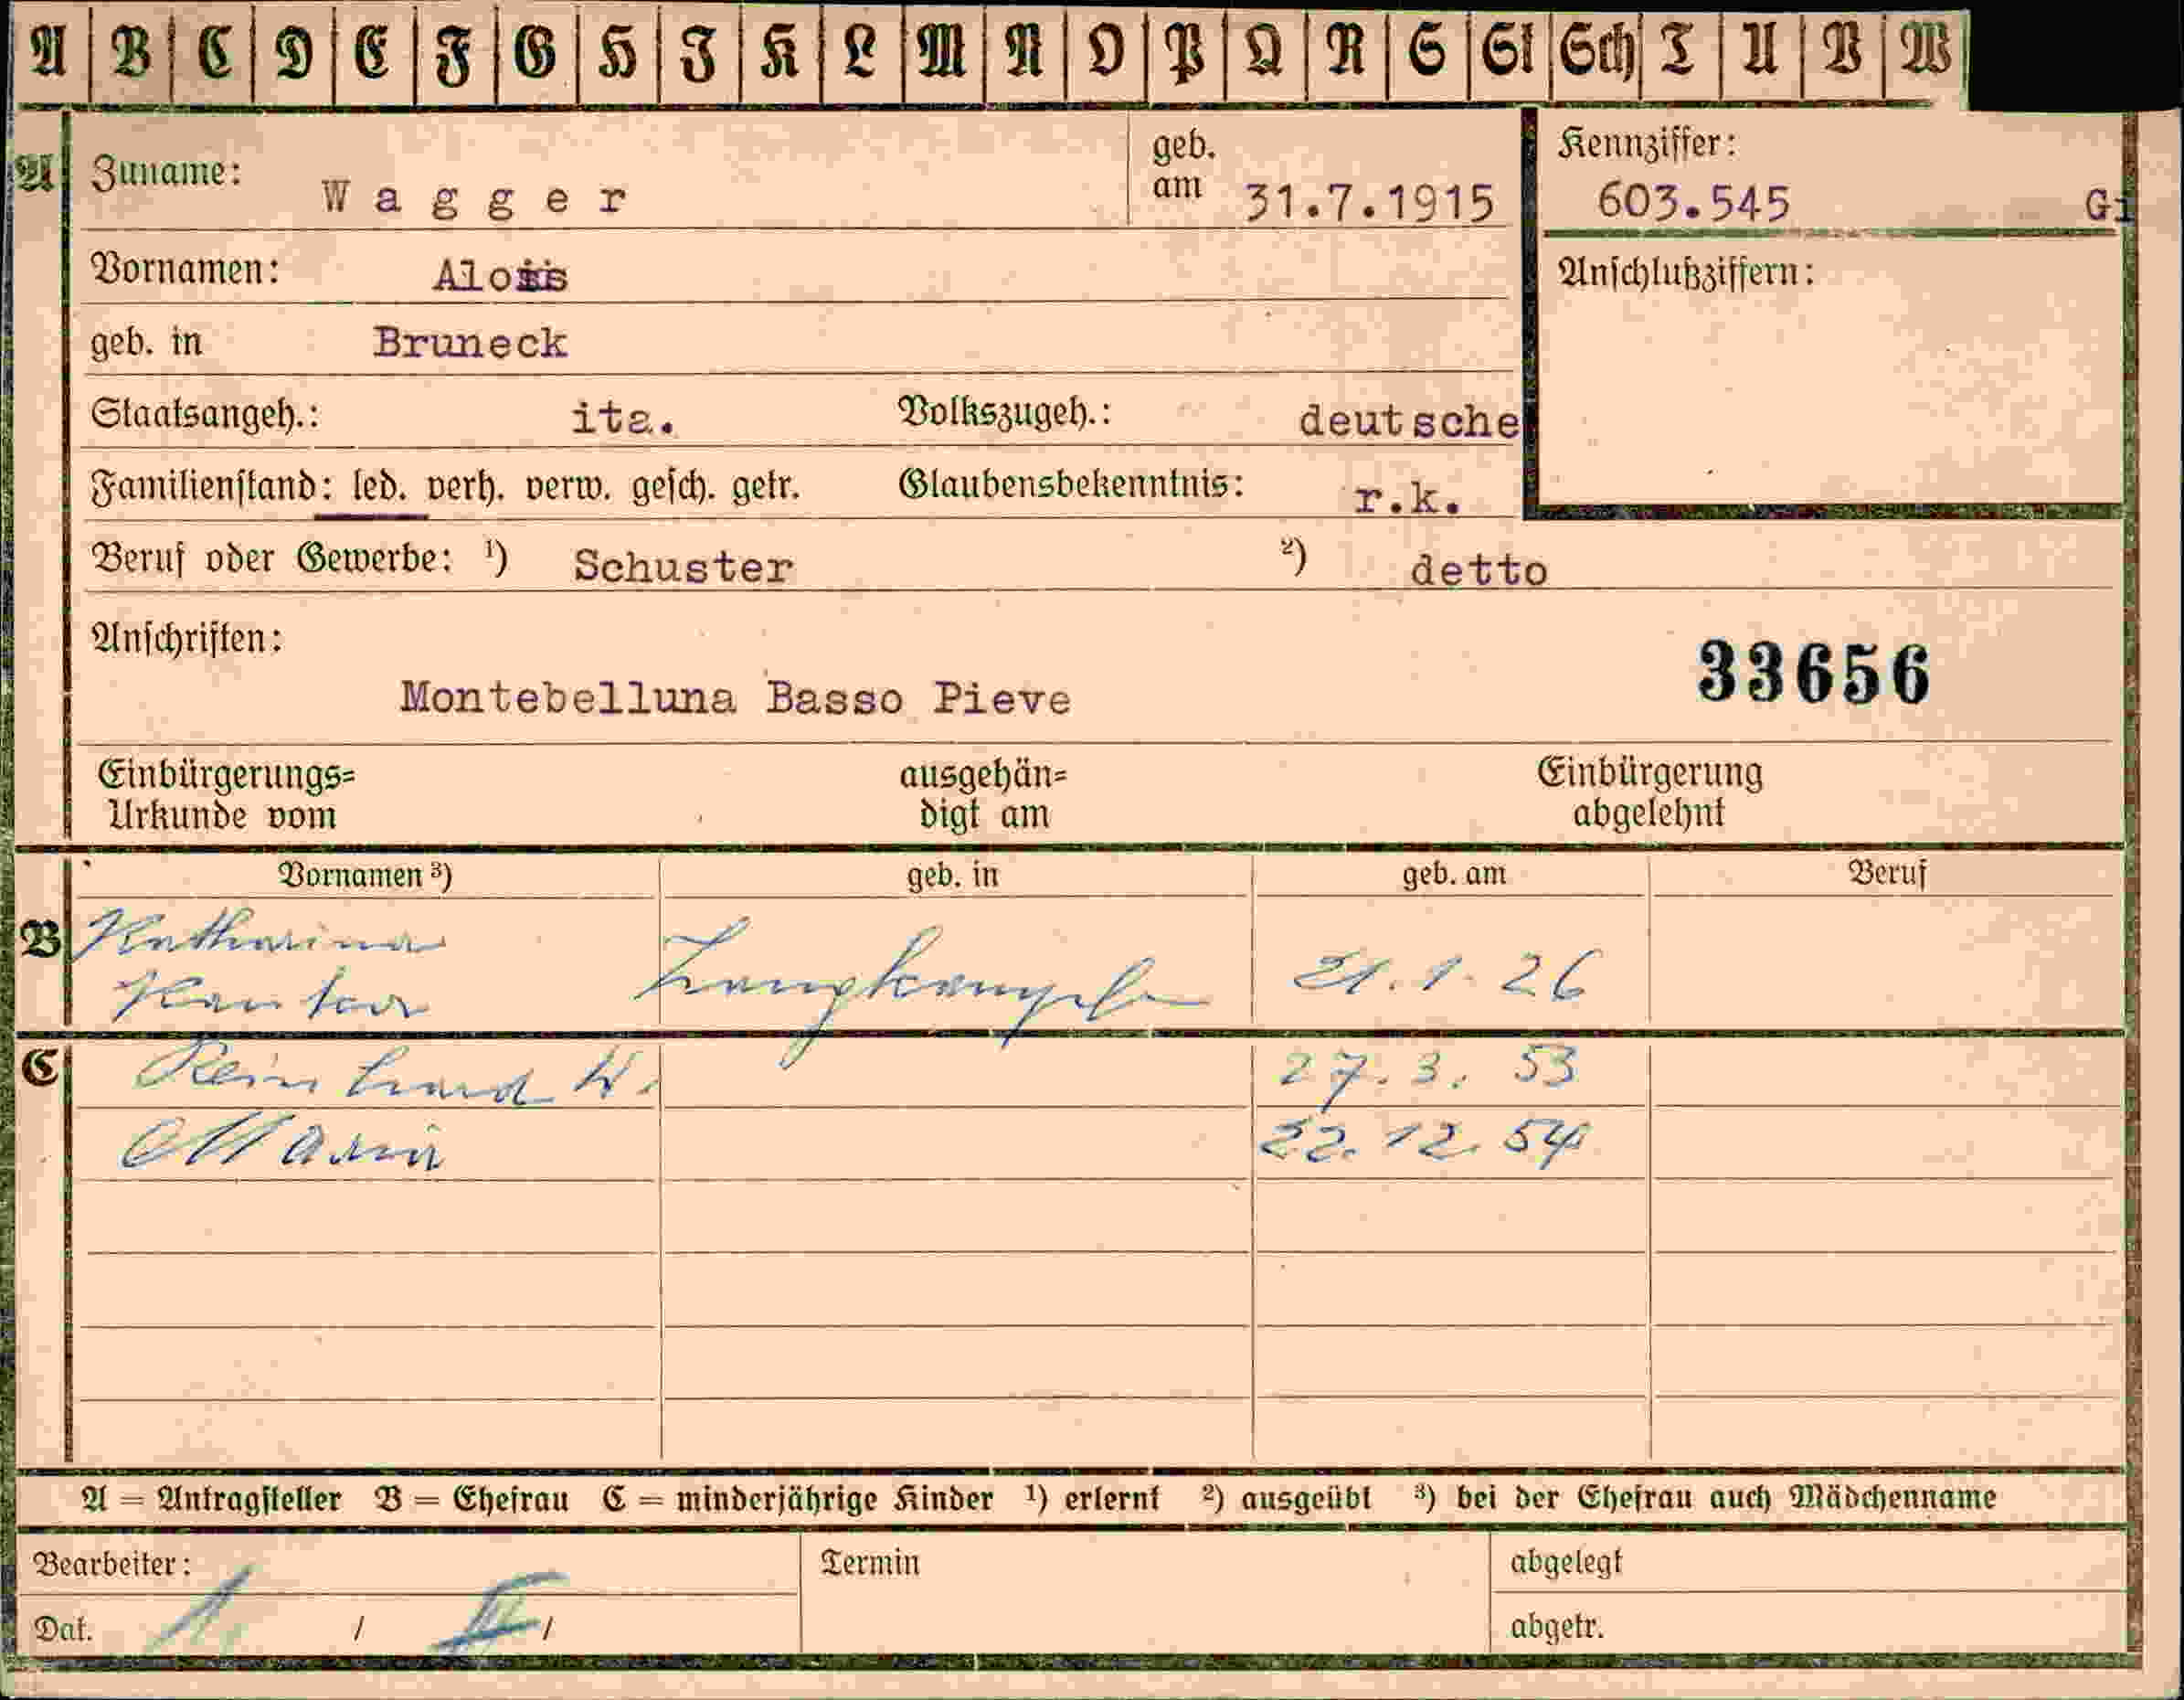 A B C D E F G H I K L M N O P Q R S St Sch T U V W
A Zuname: Wagger geb. am 31.7.1915 Kennziffer: 603.545 Gi
Vornamen: Alois Anschlußziffern:
geb. in Bruneck
Staatsangeh.: ita. Volkszugeh.: deutsche
Familienstand: led. verh. verw. gesch. getr. Glaubensbekenntnis: r.k.
Beruf oder Gewerbe: ¹) Schuster ²) detto
Anschriften:
33656
Montebelluna Basso Pieve
Einbürgerungs= ausgehän= Einbürgerung
Urkunde vom digt am abgelehnt
Vornamen ³) geb. in geb. am Beruf
B Katharina
21.1.26
C Reinhard W. 27.3.53
Maria 22.12.54
A = Antragsteller B = Ehefrau C = minderjährige Kinder ¹) erlernt ²) ausgeübt ³) bei der Ehefrau auch Mädchenname
Bearbeiter: Termin abgelegt
Dat. / / abgetr.